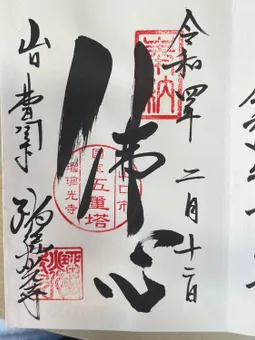 奉納
令和四年 二月十二日
佛心
山口市
国宝
五重塔
瑠璃光寺
山口
瑠璃光寺